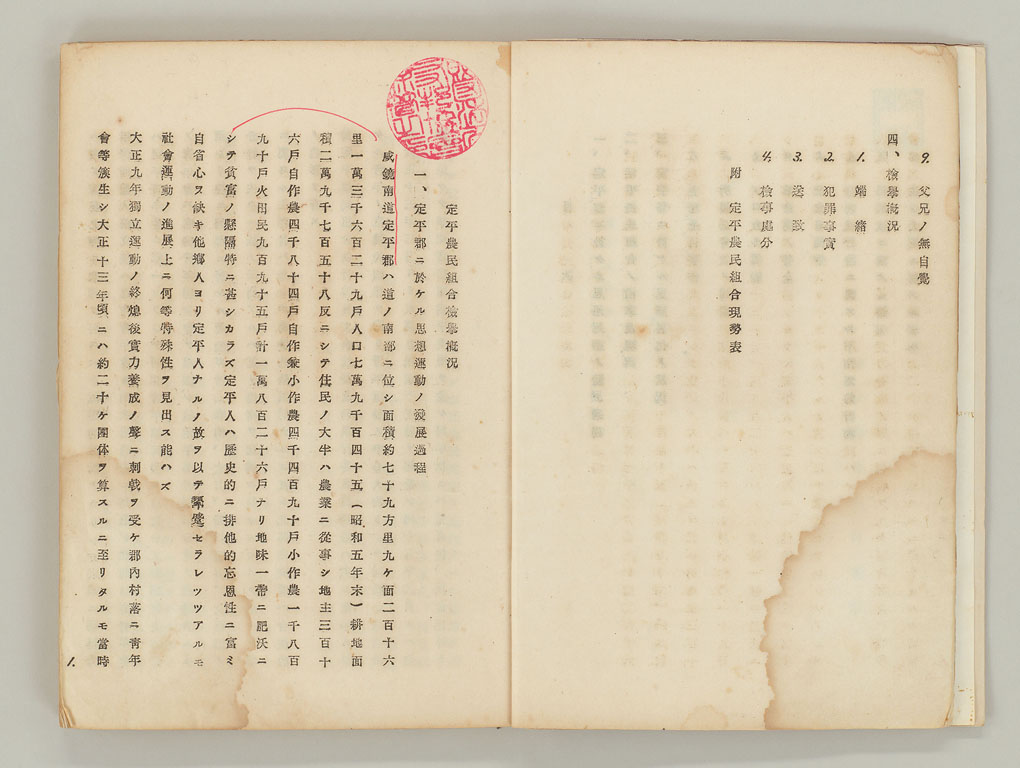 9. 父兄ノ無自覺
四、檢擧概況
1. 端緒
2. 犯罪事實
3. 送致
4. 檢事處分
附 定平農民組合現勢表
定平農民組合檢擧概況
一、定平郡ニ於ケル思想運動ノ發展過程
咸鏡南道定平郡ハ道ノ南部ニ位シ面積約七十九方里九ケ面二百十六
里一萬三千六百二十九戶人口七萬九千百四十五(昭和五年末)耕地面
積二萬九千七百五十八反ニシテ住民ノ大半ハ農業ニ從事シ地主三百十
六戶自作農四千八十四戶自作兼小作農四千四百九十戶小作農一千八百
九十戶火田民九百九十五戶計一萬八百二十六戶ナリ地味一帶ニ肥沃ニ
シテ貧富ノ懸隔特ニ甚シカラズ定平人ハ歷史的ニ排他的忘恩性ニ富ミ
自省心ヲ缺キ他鄕人ヨリ定平人ナルノ故ヲ以テ顰蹙セラレツツアルモ
社會運動ノ進展上ニ何等特殊性ヲ見出ス能ハズ
大正九年獨立運動ノ終熄後實力養成ノ聲ニ刺戟ヲ受ケ郡內村落ニ靑年
會等簇生シ大正十三年頃ニハ約二十ケ團体ヲ算スルニ至リタルモ當時
1.